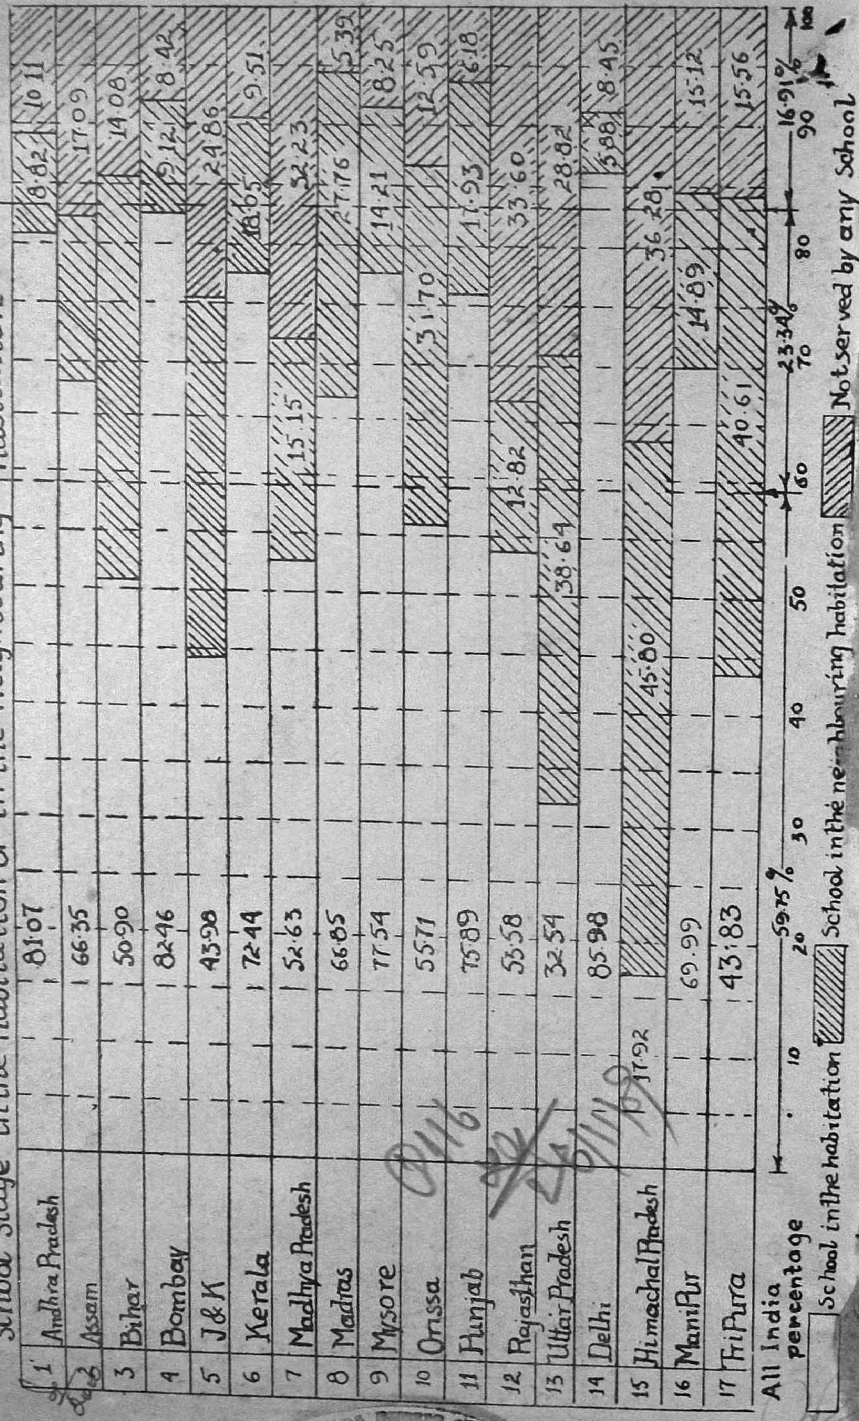 School Stage in the habitation or in the neighbouring habitation
1 Andhra Pradesh 81.07 8.82 10.11
2 Assam 66.35 17.09
3 Bihar 50.90 14.08
4 Bombay 82.46 9.12 8.42
5 J & K 43.98 24.86
6 Kerala 72.44 18.05 9.51
7 Madhya Pradesh 52.63 15.15 32.23
8 Madras 66.85 27.76 5.39
9 Mysore 77.54 14.21 8.25
10 Orissa 55.71 31.70 12.59
11 Punjab 75.89 17.93 6.18
12 Rajasthan 53.58 12.82 33.60
13 Uttar Pradesh 32.54 38.64 28.82
14 Delhi 85.98 5.88 8.45
15 Himachal Pradesh 17.92 45.80 36.28
16 ManiPur 69.99 14.89 15.12
17 TriPura 43.83 40.61 15.56
All India percentage 59.75% 23.34% 16.91%
10 20 30 40 50 60 70 80 90 100
School in the habitation School in the neighbouring habitation Not served by any School